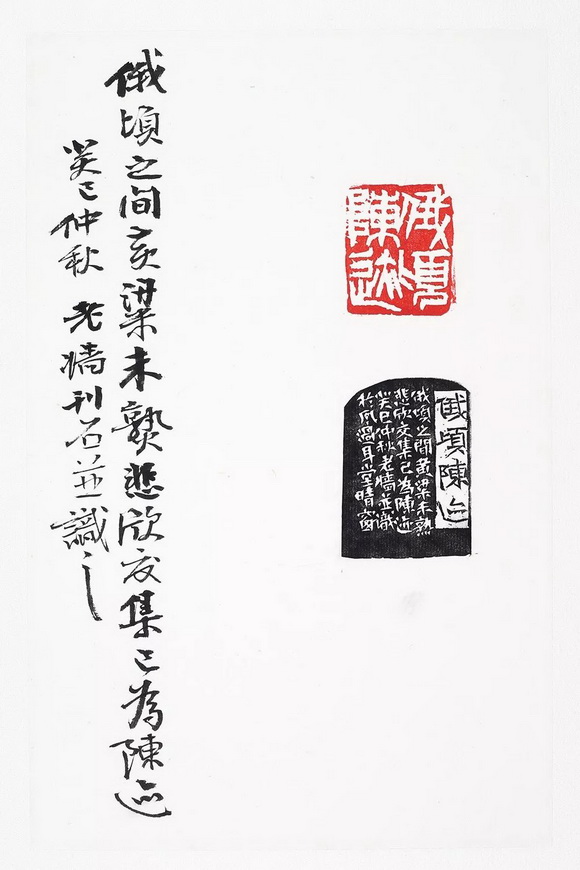 俄頃
陳迹
俄頃陳迹
俄頃之間黃粱未熟
悲欣交集已為陳迹
癸巳仲秋老牆並識
於風過耳堂晴窗
俄頃之间黃粱未熟悲欣交集已為陳迹
癸巳仲秋 老牆刊石並識之